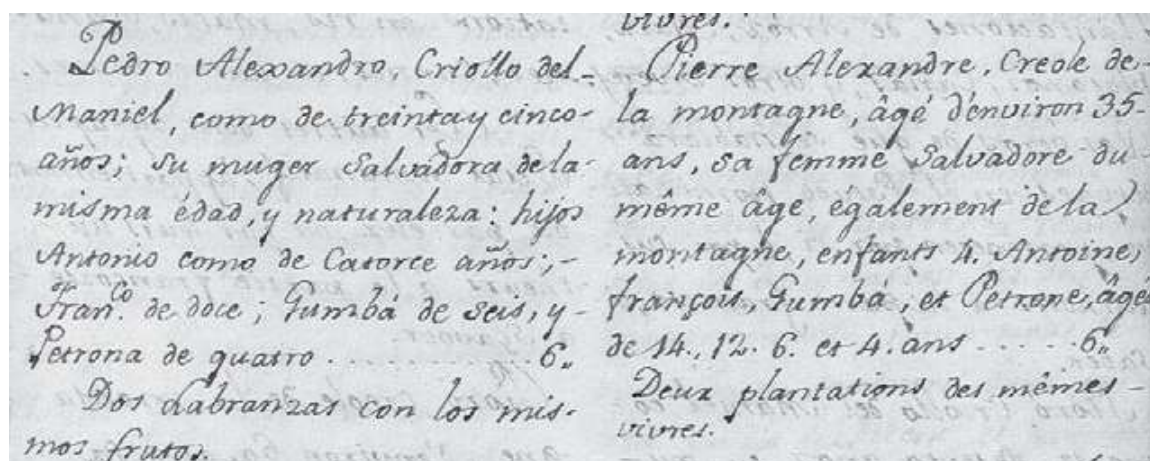 Pedro Alexandro, Criollo del-
Maniel, como de treinta y cinco-
años; su muger Salvadora de la-
misma édad, y naturaleza: hijos
Antonio como de Catorce años;-
Fran.co de doce; Gumbá de seis, y-
Petrona de quatro . . . . . . . . . . 6"
Dos Labranzas con los mis-
mos frutos.
vivres.
Pierre Alexandre, Creole de-
la montagne, âgé d'environ 35-
ans, sa femme Salvadore du-
même âge, également de la
montagne, enfants 4. Antoine,
françois, Gumbá, et Petrone, âgés
de 14., 12. 6. et 4. ans . . . . . 6"
Deux plantations des mêmes-
vivres.